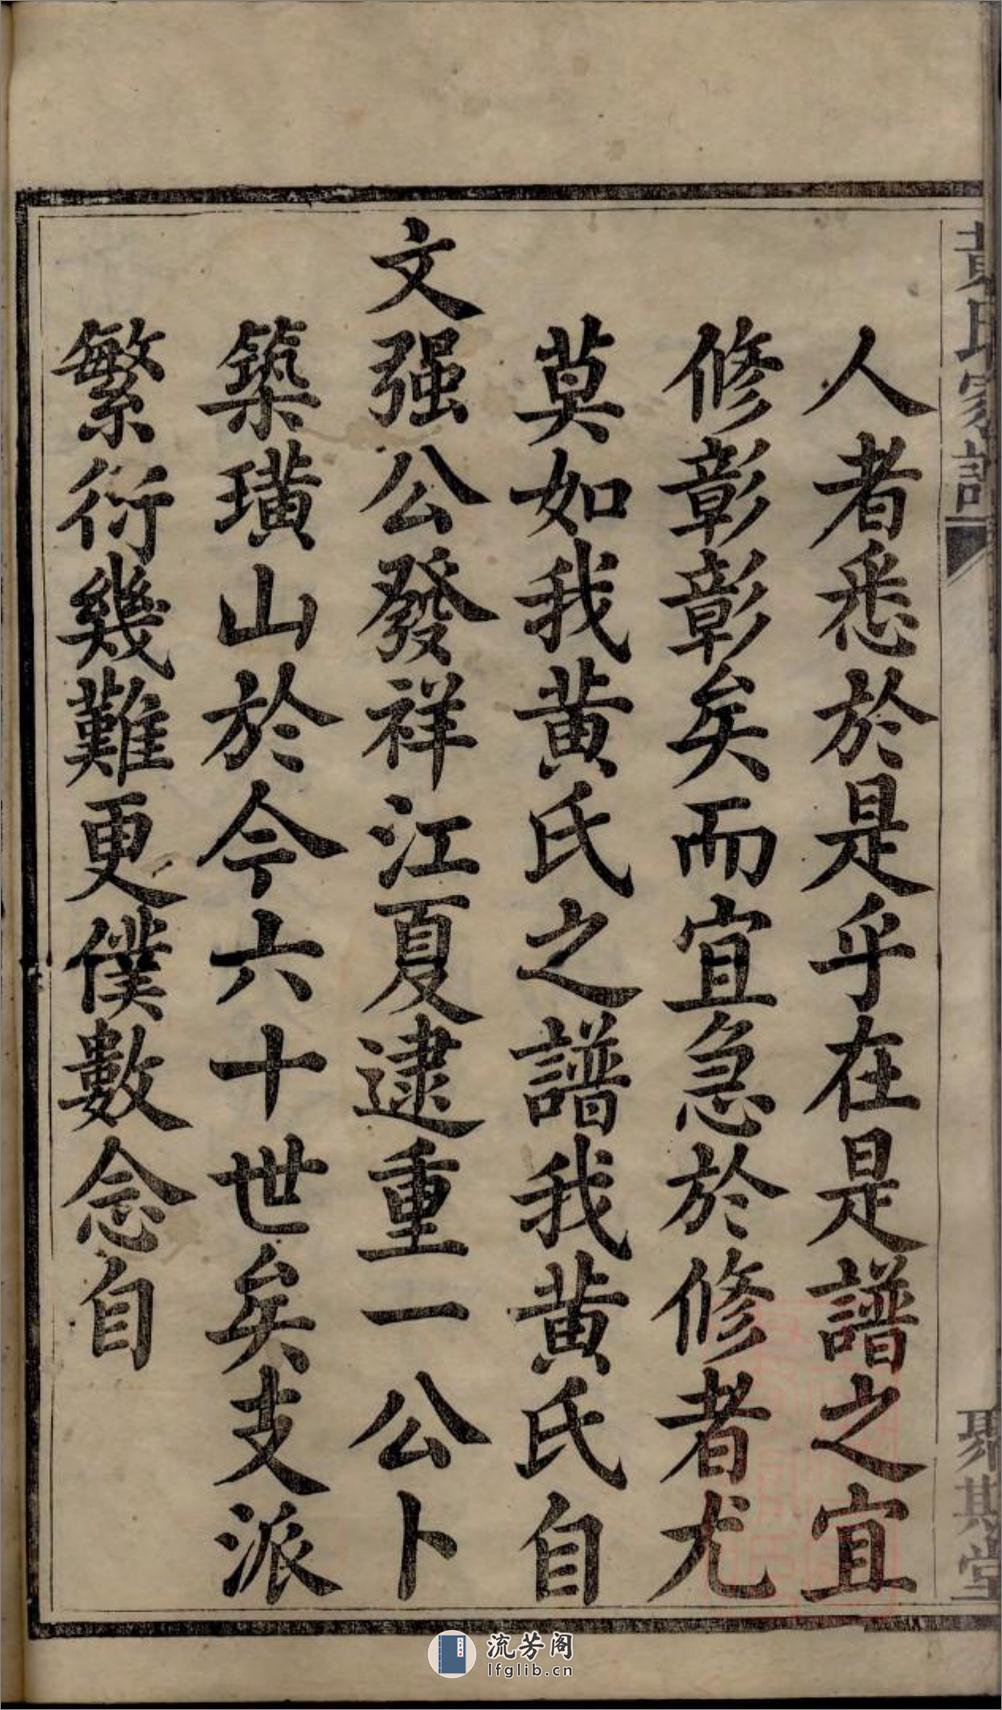 黃氏家譜
人者悉於是乎在是譜之宜
修彰彰矣而宜急於修者尤
莫如我黃氏之譜我黃氏自
文强公發祥江夏逮重一公卜
築璜山於今六十世矣支派
繁衍幾難更僕數念自
流芳阁
lfglib.cn